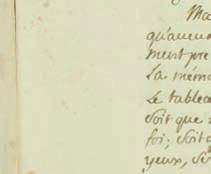 Ma
qu'aucun
ment pre
la mémo
le tablea
soit que
foi; soit
yeux, se